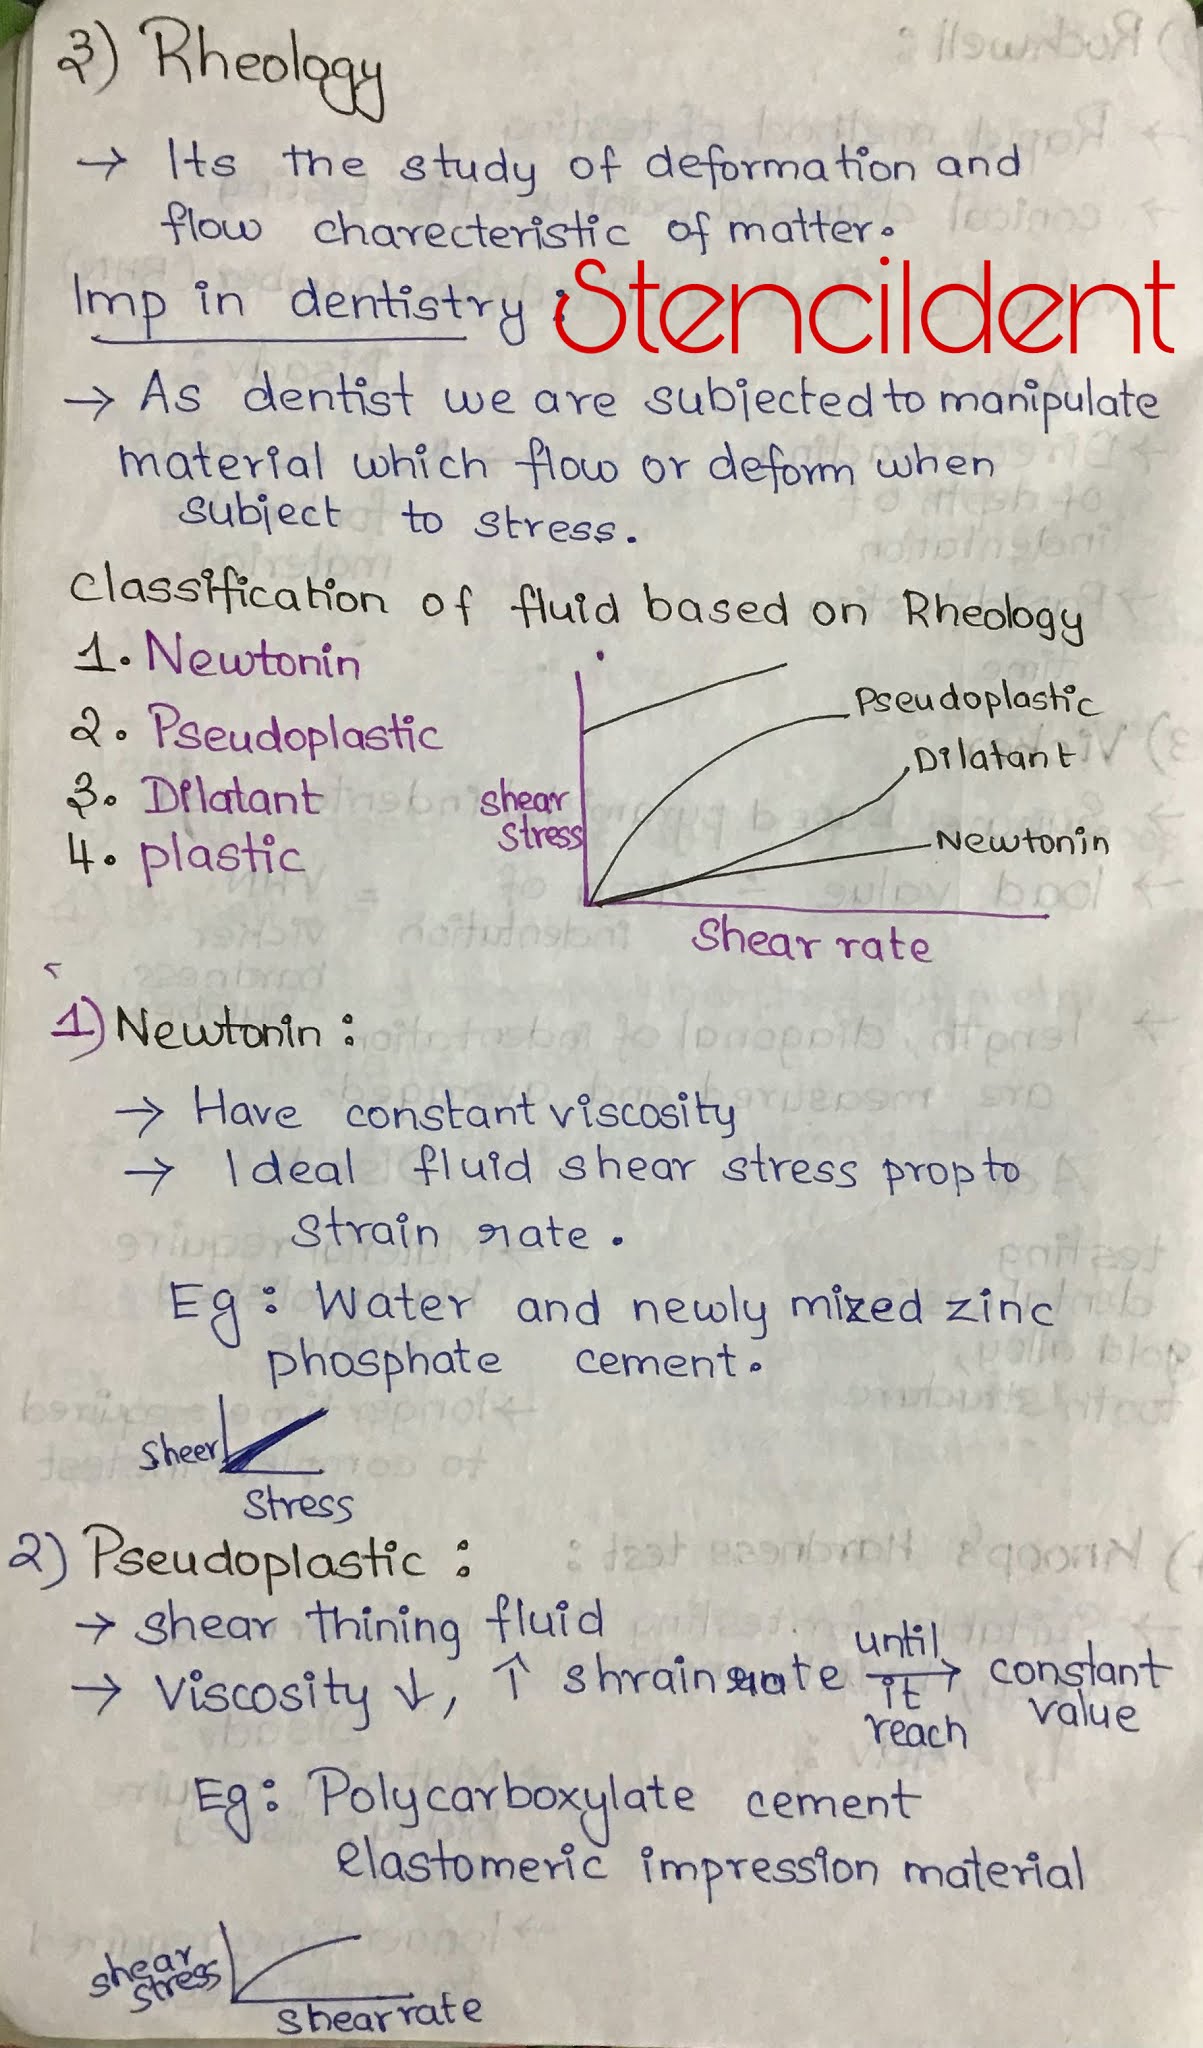 3) Rheology
→ Its the study of deformation and
flow charecteristic of matter.
Imp in dentistry :
Stencildent
→ As dentist we are subjected to manipulate
material which flow or deform when
subject to stress.
Classification of fluid based on Rheology
1. Newtonin
2. Pseudoplastic
3. Dilatant
4. plastic
Pseudoplastic
Dilatant
Newtonin
shear
stress
Shear rate
1) Newtonin :
→ Have constant viscosity
→ Ideal fluid shear stress prop to
strain rate.
Eg: Water and newly mixed zinc
phosphate cement.
Sheer
Stress
2) Pseudoplastic :
→ shear thining fluid
→ Viscosity ↓, ↑ shrain rate until it reach → constant value
Eg: Polycarboxylate cement
elastomeric impression material
shear
stress
Shear rate